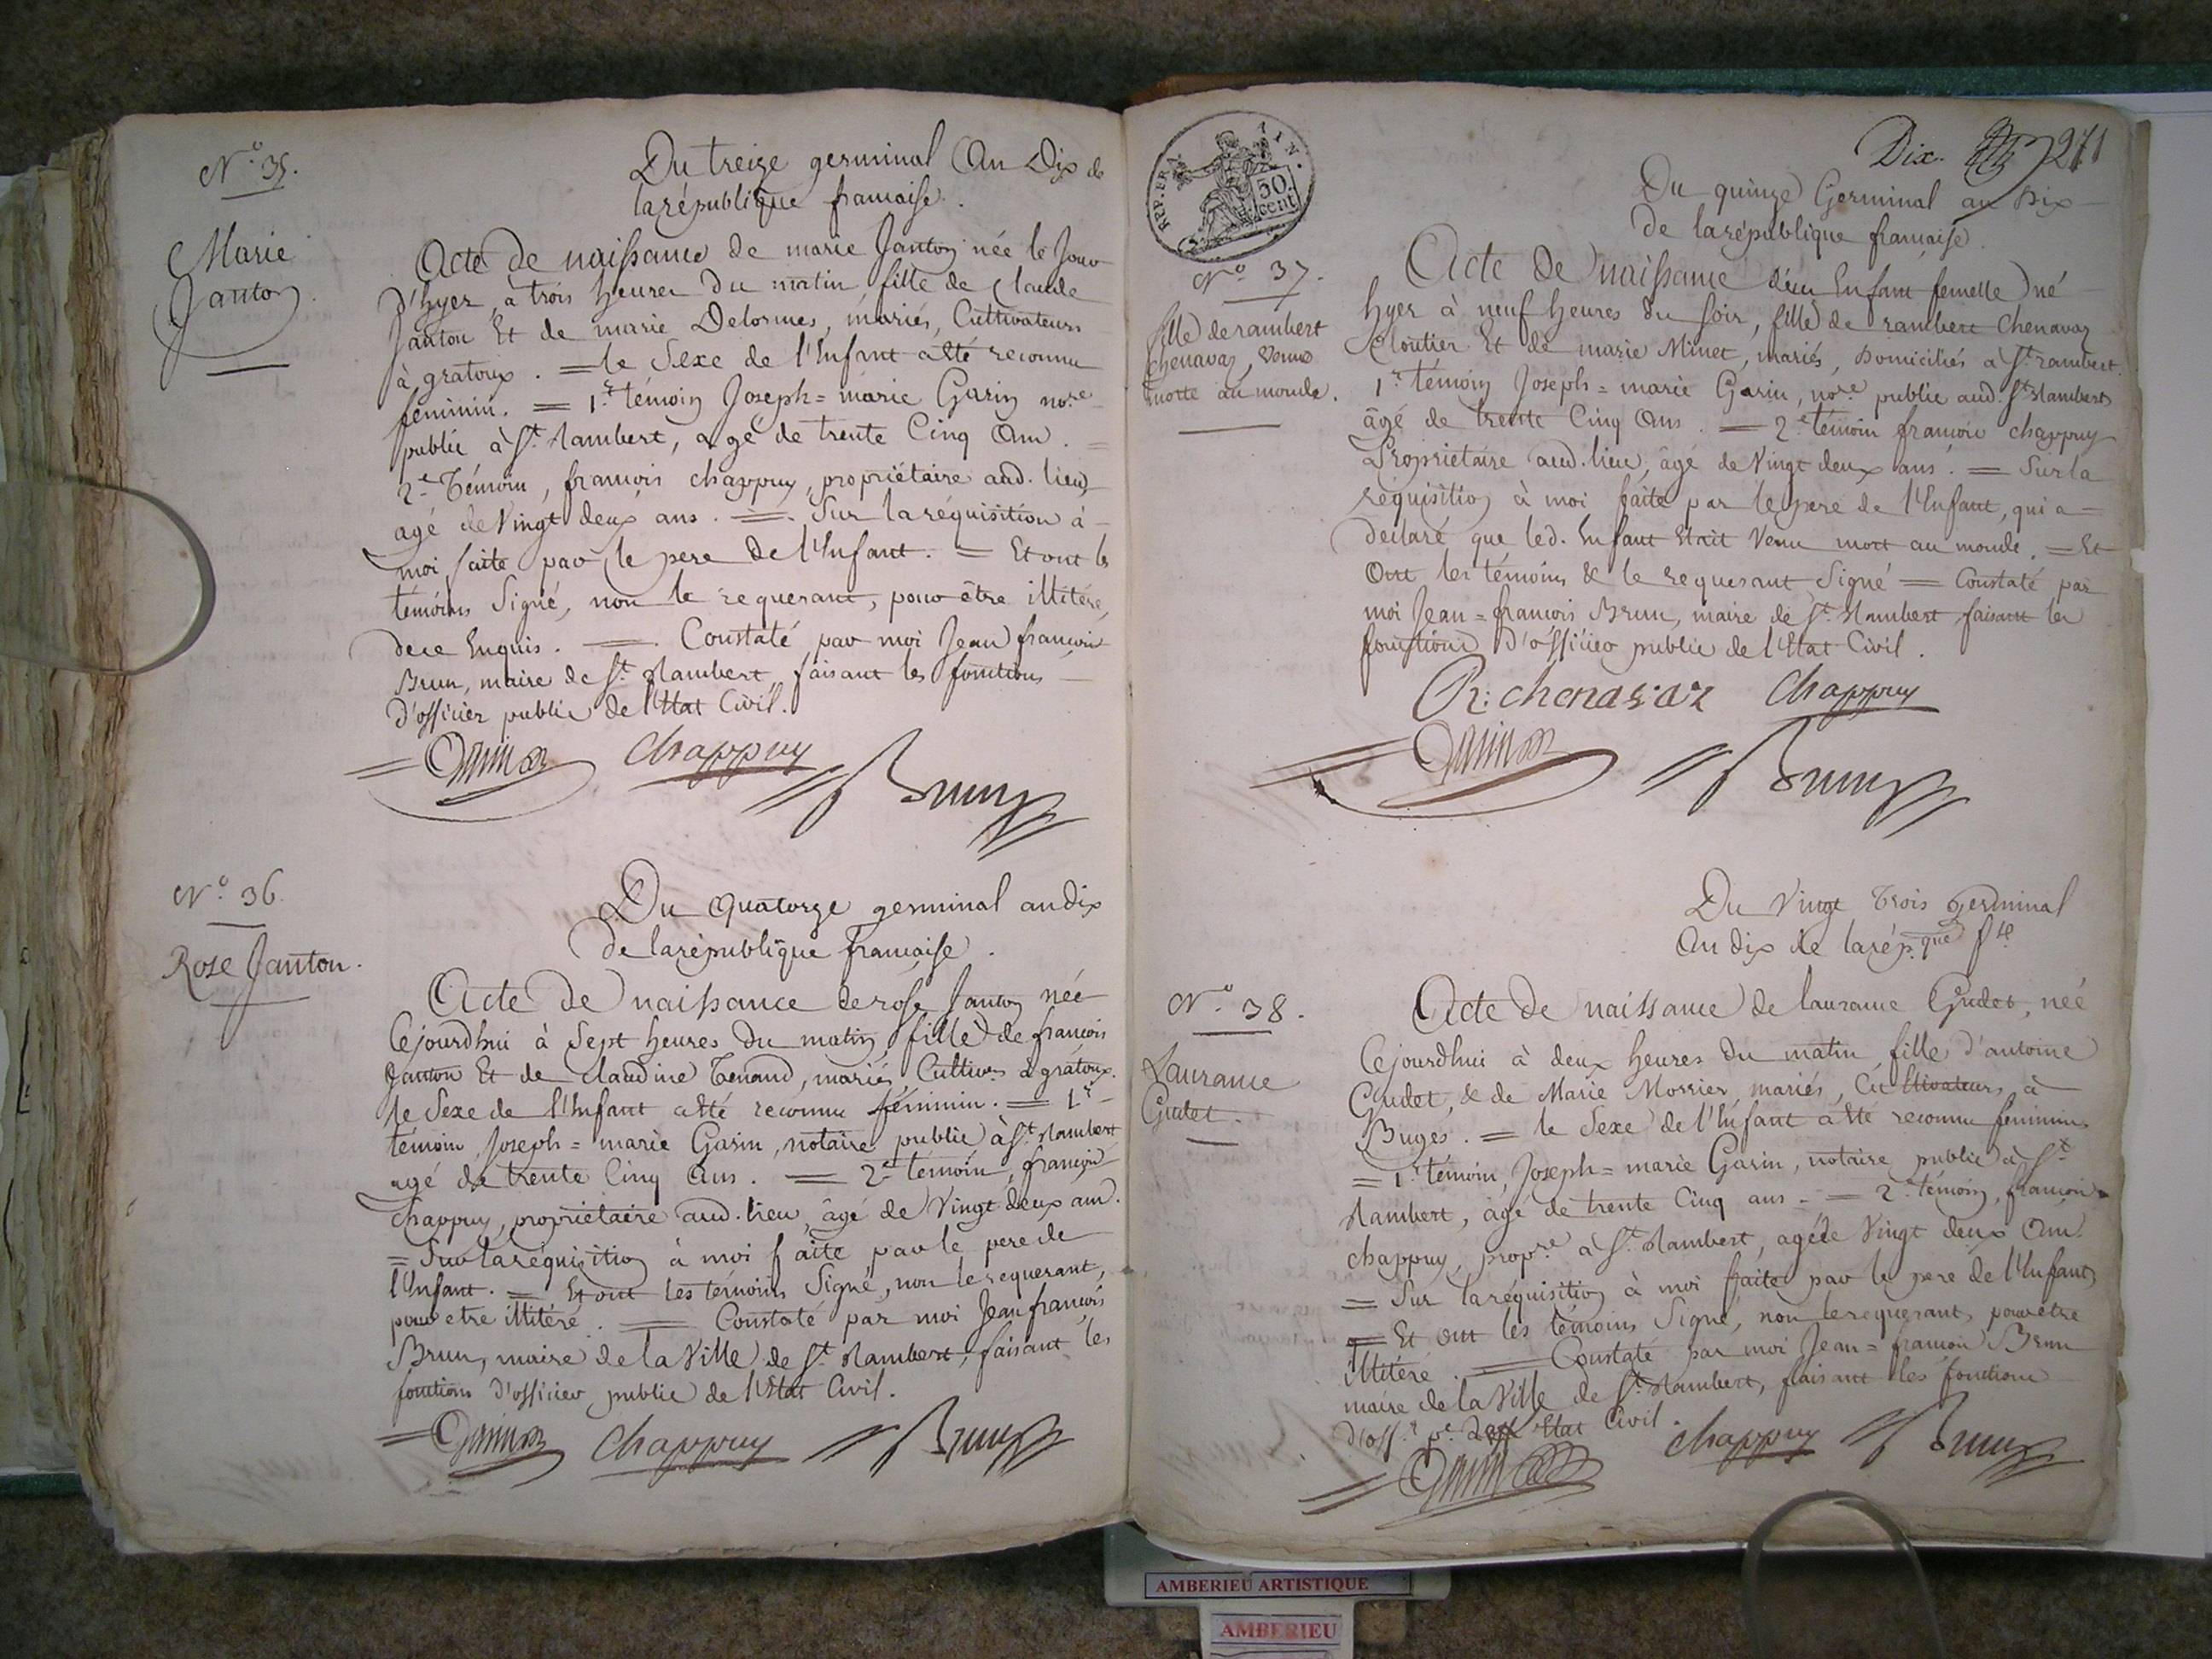 N.o 35.
Marie
Janton.
Du treize germinal An Dix de
la république francaise.
Acte de naissance de marie Janton née le Jour
d'hyer, a trois heures du matin fille de Claude
Janton Et de marie Delormes, mariés, Cultivateurs
à gratoux. = le Sexe de l'Enfant a Eté reconnu
feminin. = 1.r témoin Joseph = marie Garin no.re
public à St. Rambert, agé de trente Cinq Ans. =
2.e Témoin, francois chappuy, propriétaire aud. lieu,
agé de Vingt deux ans. = Sur la réquisition à
moi faite par le pere de l'Enfant. = Et ont les
témoins Signé, non le requerant, pour être illitéré,
de ce Enquis. = Constaté par moi Jean francois
Brun, maire de St. Rambert, faisant les fonctions
d'officier public de l'Etat Civil.
Garin chappuy Brun
N.o 36.
Rose Janton.
Du quatorze germinal an dix
de la république francaise.
Acte de naissance de rose Janton née
Cejourdhui à Sept heures du matin, fille de francois
Janton Et de claudine Tenand, mariés, Cultivrs à gratoux.
le Sexe de l'Enfant a Eté reconnu féminin. = 1.r
témoin Joseph = marie Garin, notaire public à St. Rambert
agé de trente Cinq Ans. = 2.e témoin, francois
chappuy, propriétaire aud. lieu, âgé de Vingt deux ans.
= Sur la réquizition à moi faite par le pere de
l'Enfant. = Et ont les témoins Signé, non le requerant,
pour etre illitéré. = Constaté par moi Jean francois
Brun, maire de la Ville de St. Rambert, faisant les
fonctions d'officier public de l'Etat Civil.
Garin chappuy Brun
REP. FRA. AIN.
50.
cent
Dix. 271
N.o 37.
fille de rambert
chenavaz, venue
morte au monde.
Du quinze Germinal an Dix
de la république francaise.
Acte de naissance d'un Enfant femelle né
hyer à neuf heures du soir, fille de rambert Chenavaz
Cloutier Et de marie Minet, mariés, Domiciliés à St. rambert.
1.r témoin Joseph = marie Garin, no.re public aud. St. Rambert
âgé de trente Cinq Ans. = 2.e témoin francois chappuy
Propriétaire aud. lieu, âgé de Vingt deux ans. = Sur la
réquisition à moi faite par le pere de l'Enfant, qui a
déclaré que led. Enfant Etait Venu mort au monde. = Et
Ont les témoins & le requerant Signé = Constaté par
moi Jean = francois Brun, maire de St. Rambert faisant les
fonctions d'officier public de l'Etat Civil.
R: chenavaz Chappuy
Garin Brun
N.o 38.
Laurance
Gudet.
Du Vingt Trois Germinal
An dix de la rép.que f.se
Acte de naissance de laurance Gudet, née
Cejourdhui à deux heures du matin, fille d'antoine
Gudet, & de Marie Morrier, mariés, Cultivateurs, à
Buges. = le Sexe de l'Enfant a Eté reconnu féminin.
= 1.r témoin, Joseph = marie Garin, notaire public à St.
Rambert, âgé de trente Cinq ans. = 2.e témoin, francois
chappuy, prop.re à St. Rambert, agé de Vingt deux Ans.
= Sur la réquisition à moi faite par le pere de l'Enfant,
= Et Ont les témoins Signé, non le requerant, pour être
illitéré. = Constaté par moi Jean = francois Brun
maire de la Ville de St. Rambert, faisant les fonctions
d'off.r p.c Etat Civil.
Garin chappuy Brun
AMBERIEU ARTISTIQUE
AMBERIEU